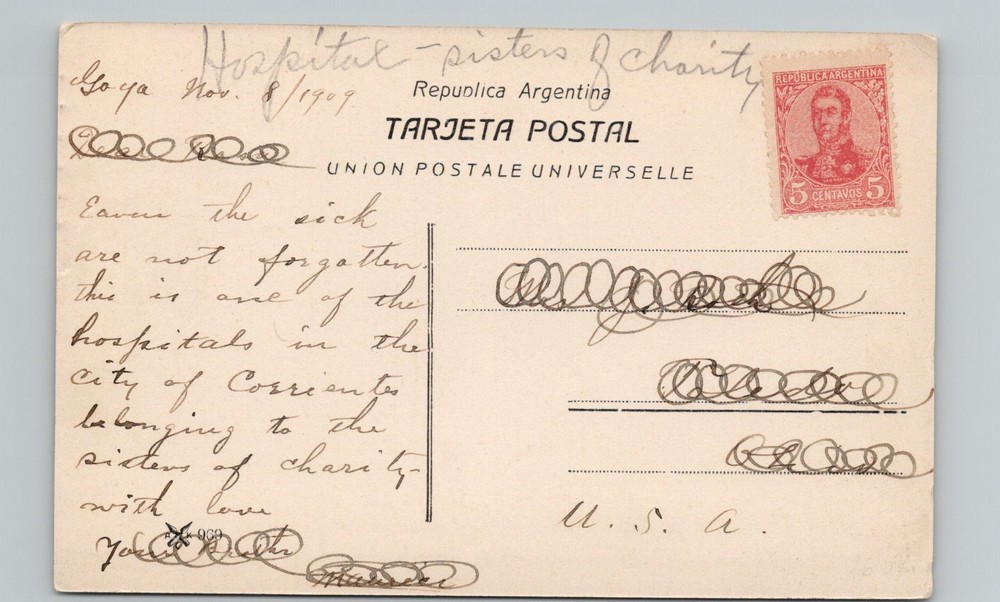 Hospital - sisters of charity
Goya Nov. 8/1909
Republica Argentina
TARJETA POSTAL
UNION POSTALE UNIVERSELLE
REPÚBLICA ARGENTINA
5 CENTAVOS 5
Eaven the sick
are not forgotten.
this is one of the
hospitals in the
city of Corrientes
belonging to the
sisters of charity-
with love
969
Your
Maurice
U. S. A.